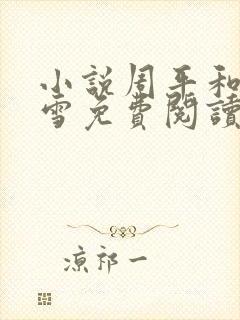 小説周平和
雪免費閱讀
涼祁一